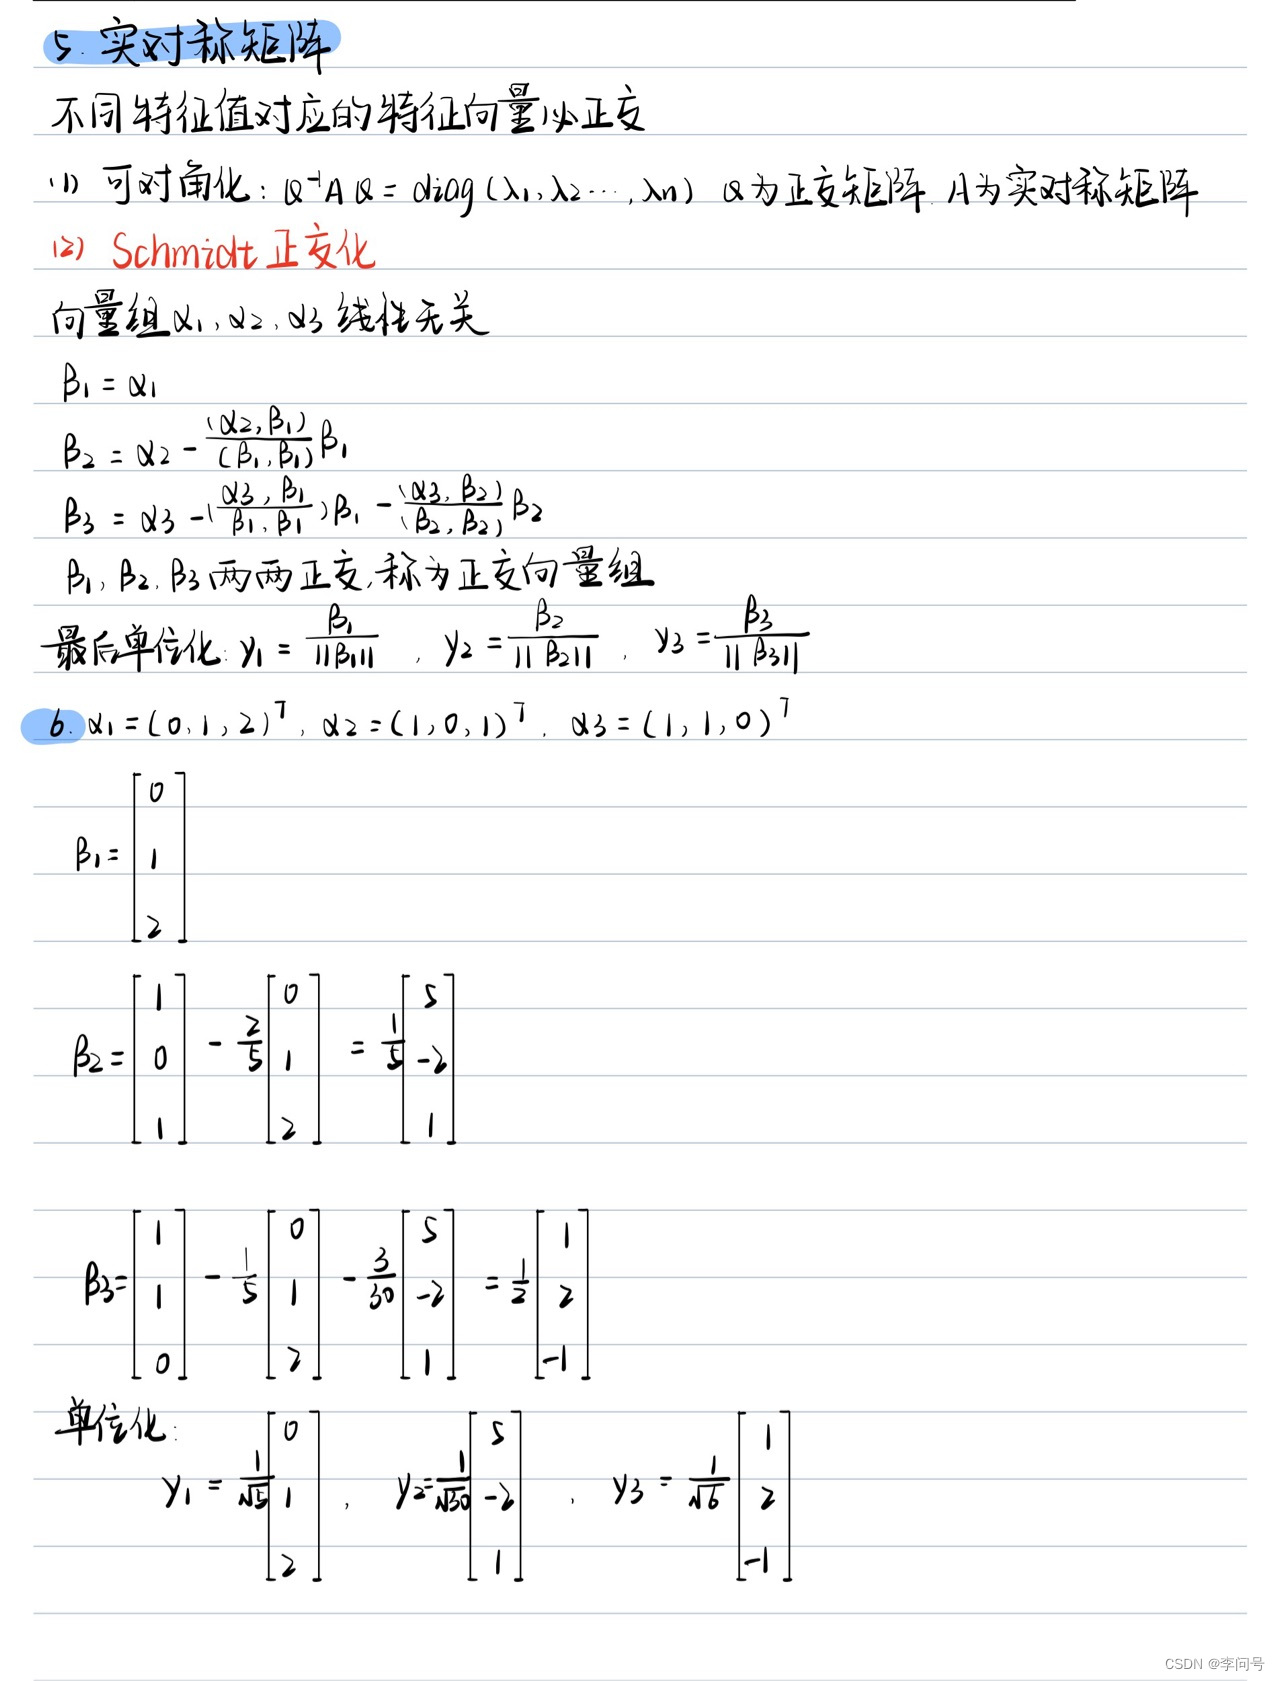 5. 实对称矩阵
不同特征值对应的特征向量必正交
(1) 可对角化: Q⁻¹AQ = diag(λ1,λ2…,λn) Q为正交矩阵. A为实对称矩阵
(2) Schmidt 正交化
向量组α1,α2,α3线性无关
β1 = α1
β2 = α2 - (α2,β1)/(β1,β1) β1
β3 = α3 - (α3,β1/β1,β1)β1 - (α3,β2)/(β2,β2) β2
β1, β2, β3两两正交,称为正交向量组
最后单位化: y1 = β1/||β1||, y2 = β2/||β2||, y3 = β3/||β3||
6. α1=(0,1,2)ᵀ, α2=(1,0,1)ᵀ. α3=(1,1,0)ᵀ
β1= [0 1 2]
β2= [1 0 1] - 2/5 [0 1 2] = 1/5 [5 -2 1]
β3= [1 1 0] - 1/5 [0 1 2] - 3/30 [5 -2 1] = 1/2 [1 2 -1]
单位化:
y1 = 1/√5 [0 1 2], y2= 1/√30 [5 -2 1], y3 = 1/√6 [1 2 -1]
CSDN @李问号